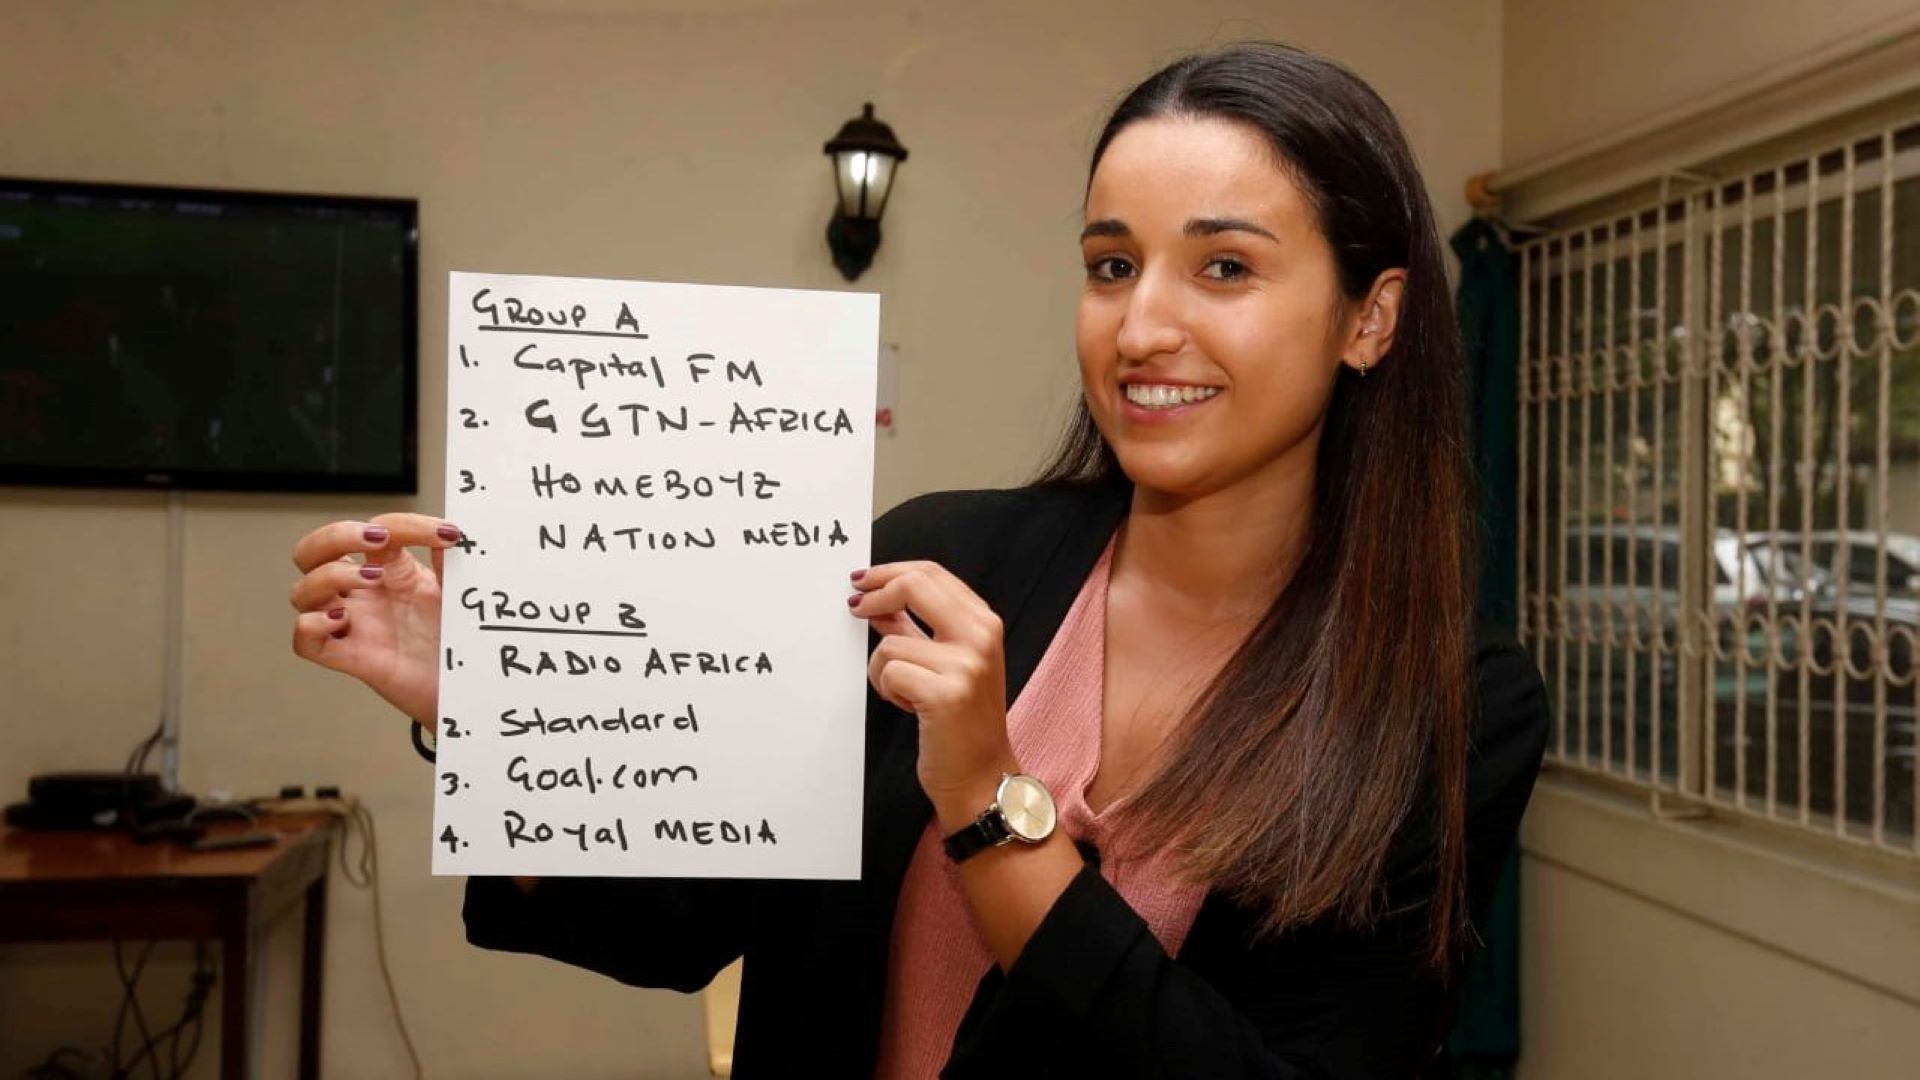 GROUP A
1. Capital FM
2. GGTN-AFRICA
3. HOMEBOYZ
4. NATION MEDIA
GROUP B
1. RADIO AFRICA
2. Standard
3. Goal.com
4. Royal MEDIA